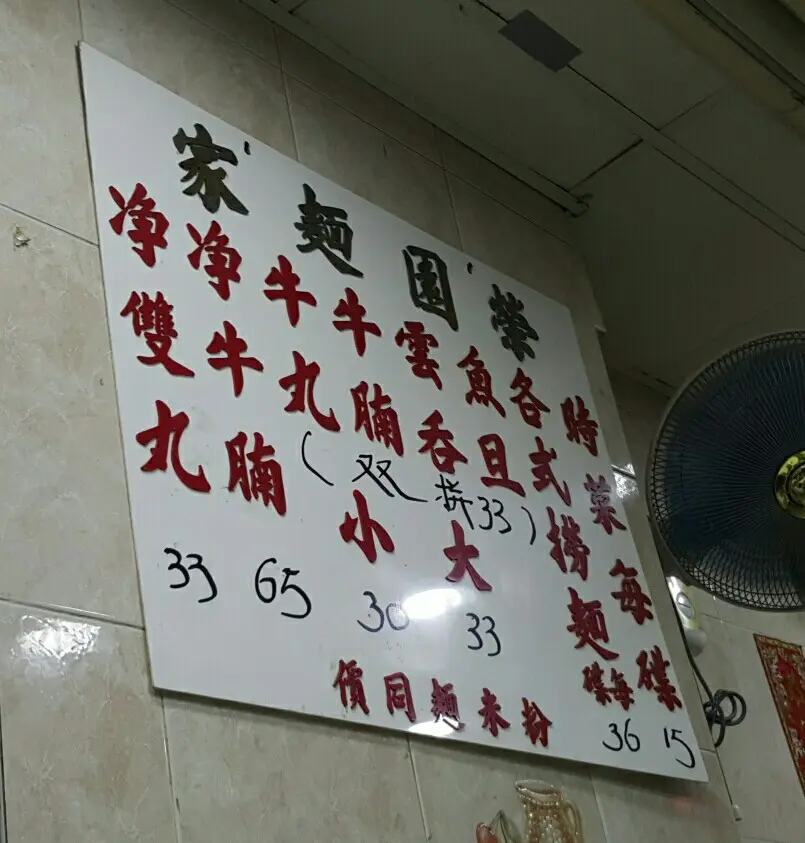 榮園麵家
時菜每碟 15
各式撈麵每碟 36
魚旦
雲吞
牛腩
牛丸
(双拼33)
大 33
小 30
净牛腩 65
净雙丸 33
粉米麵同價